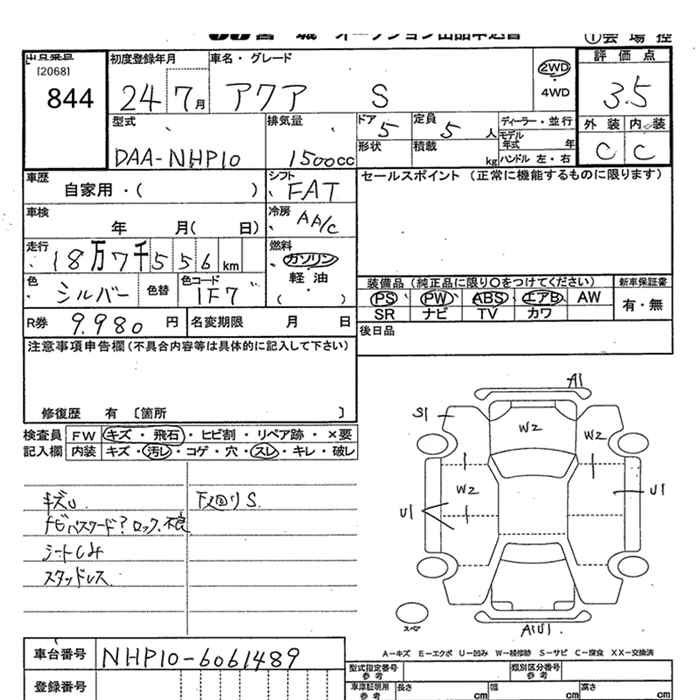 宮 城 オークション出品申込書
①会 場 控
出品番号
[2068]
844
初度登録年月
24 7月
車名・グレード
アクア S
2WD
・
4WD
評 価 点
3.5
外 装 内 装
C C
型式
DAA-NHP10
排気量
1500cc
ドア 5
定員 5 人
形状
積載 kg
ディーラー・並行
モデル年式 年
ハンドル 左・右
車歴
自家用・( )
シフト
FAT
セールスポイント (正常に機能するものに限ります)
車検
年 月( 日)
冷房
AA/C
走行
18万7千556km
燃料
ガソリン
軽・油
( )
色
シルバー
色替
色コード
1F7
装備品 (純正品に限り○をつけてください)
新車保証書
PS PW ABS エアB AW
有・無
SR ナビ TV カワ
R券 9.980 円
名変期限 月 日
後日品
注意事項申告欄(不具合内容等は具体的に記入して下さい)
修復歴 有 〔箇所 〕
検査員
記入欄
FW キズ・飛石・ヒビ割・リペア跡・×要
内装 キズ・汚レ・コゲ・穴・スレ・キレ・破レ
キズU
下回りS
ナビパスワード?ロック、不良
シートしみ
スタッドレス
A1
S1
W2
W2
W2
U1
U1
A1U1
スペア
A-キズ E-エクボ U-凹み W-補修跡 S-サビ C-腐食 XX-交換済
車台番号
NHP10-6061489
登録番号
型式指定番号
参考
類別区分番号
参考
車庫証明用
参考
長さ cm
幅 cm
高さ cm